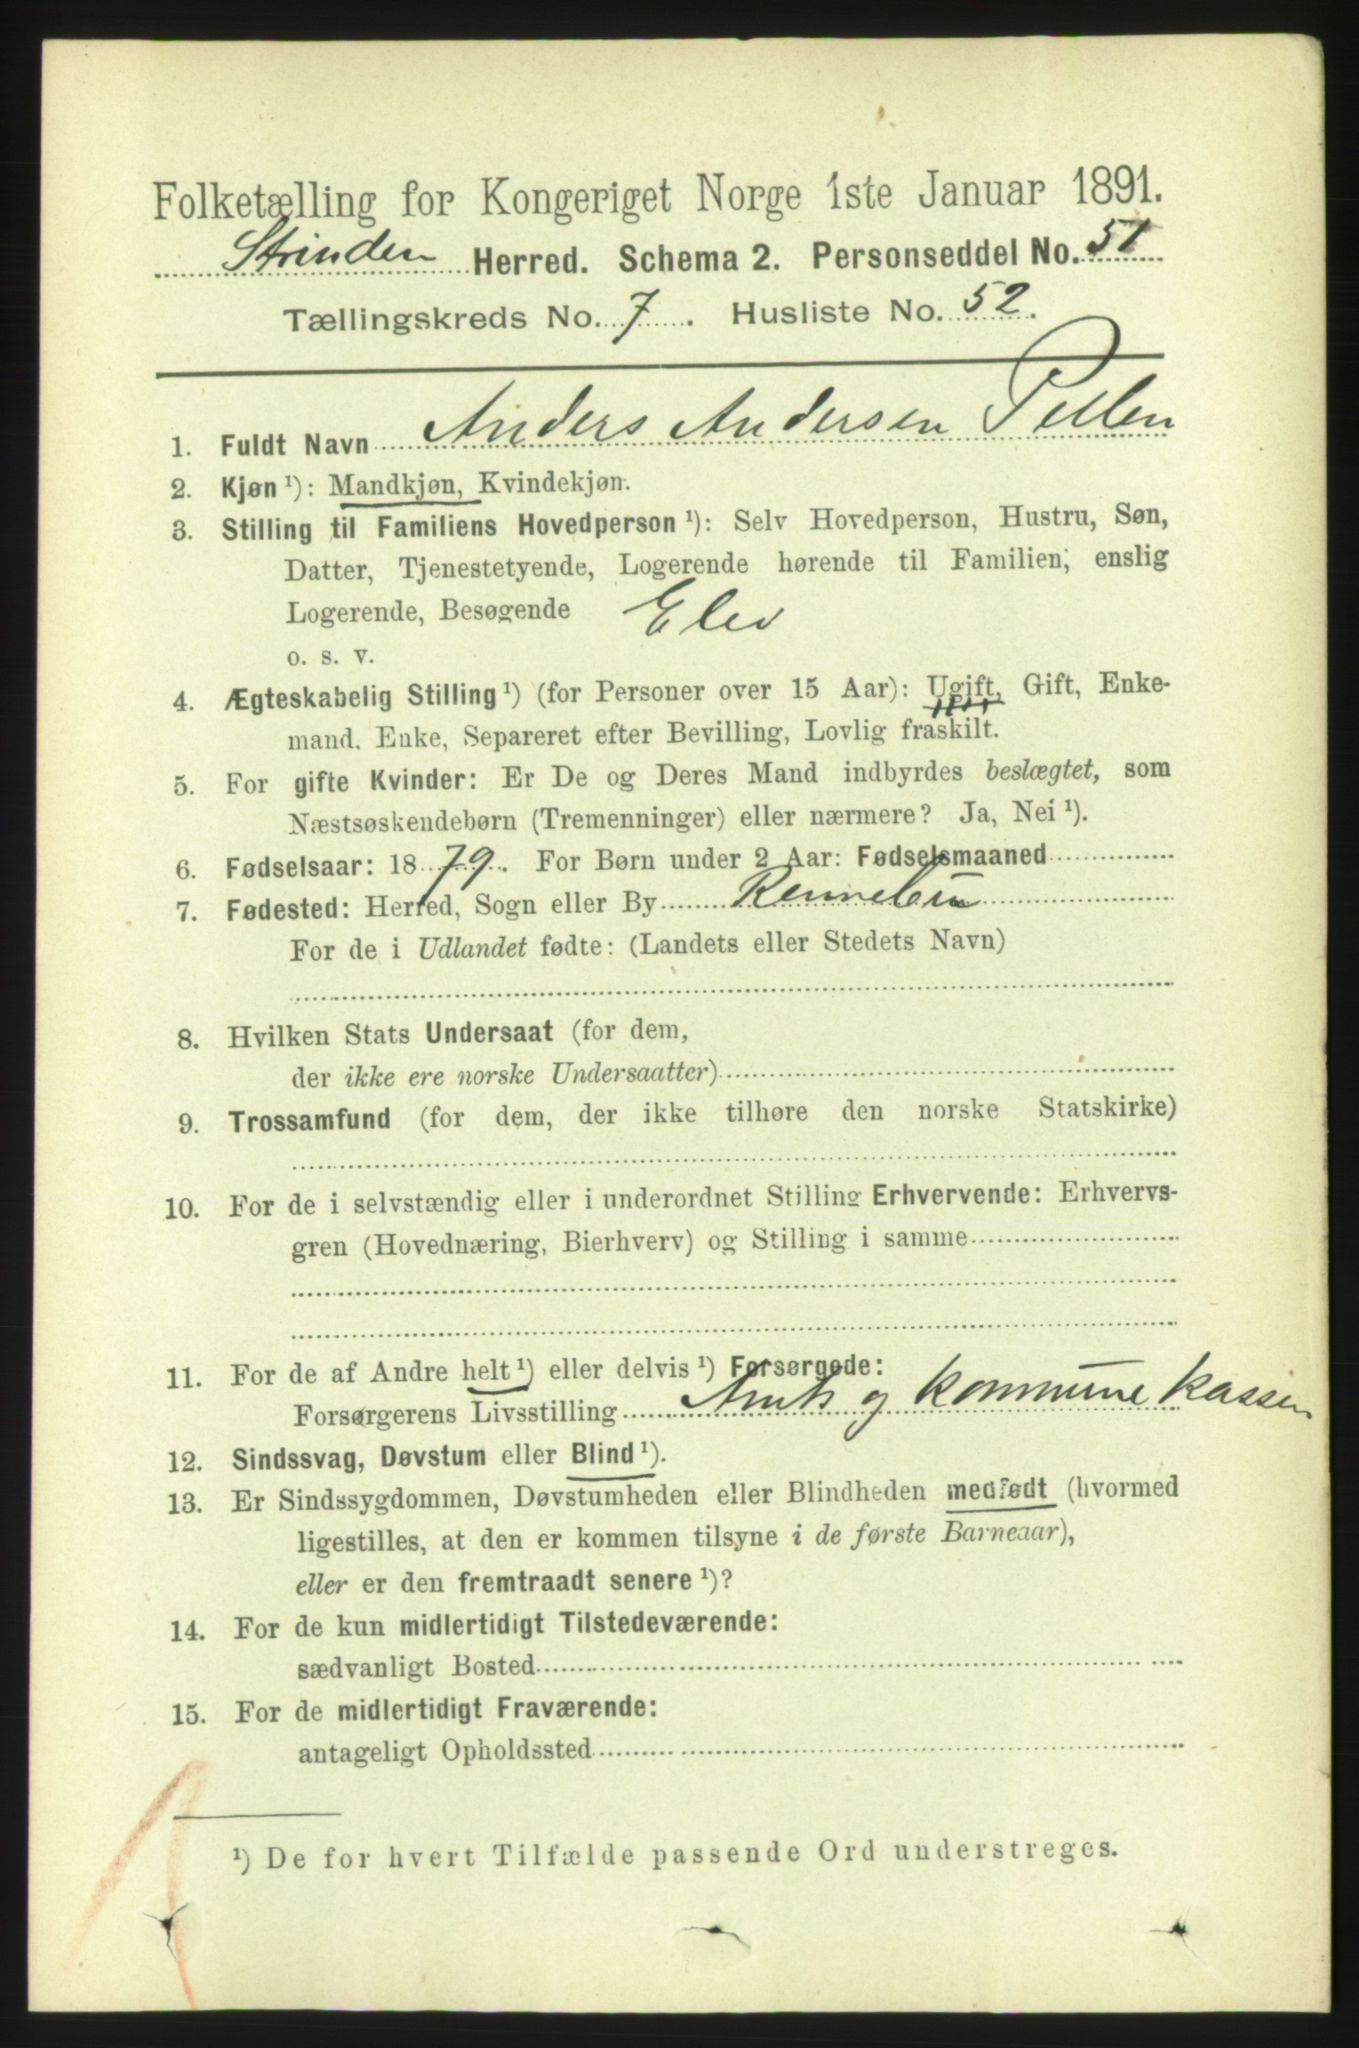 Folketælling for Kongeriget Norge 1ste Januar 1891.
Strinden Herred. Schema 2. Personseddel No. 51
Tællingskreds No. 7. Husliste No. 52.
1. Fuldt Navn Anders Andersen
2. Kjøn ¹): Mandkjøn, Kvindekjøn.
3. Stilling til Familiens Hovedperson ¹): Selv Hovedperson, Hustru, Søn,
Datter, Tjenestetyende, Logerende hørende til Familien, enslig
Logerende, Besøgende Elev
o. s. v.
4. Ægteskabelig Stilling ¹) (for Personer over 15 Aar): Ugift, Gift, Enke-
mand, Enke, Separeret efter Bevilling, Lovlig fraskilt.
5. For gifte Kvinder: Er De og Deres Mand indbyrdes beslægtet, som
Næstsøskendebørn (Tremenninger) eller nærmere? Ja, Nei ¹).
6. Fødselsaar: 1879. For Børn under 2 Aar: Fødselsmaaned
7. Fødested: Herred, Sogn eller By Rennebu
For de i Udlandet fødte: (Landets eller Stedets Navn)
8. Hvilken Stats Undersaat (for dem,
der ikke ere norske Undersaatter)
9. Trossamfund (for dem, der ikke tilhøre den norske Statskirke)
10. For de i selvstændig eller i underordnet Stilling Erhvervende: Erhvervs-
gren (Hovednæring, Bierhverv) og Stilling i samme
11. For de af Andre helt ¹) eller delvis ¹) Forsørgede:
Forsørgerens Livsstilling Amts og Kommune Kassen
12. Sindssvag, Døvstum eller Blind ¹).
13. Er Sindssygdommen, Døvstumheden eller Blindheden medfødt (hvormed
ligestilles, at den er kommen tilsyne i de første Barneaar),
eller er den fremtraadt senere ¹)?
14. For de kun midlertidigt Tilstedeværende:
sædvanligt Bosted
15. For de midlertidigt Fraværende:
antageligt Opholdssted
¹) De for hvert Tilfælde passende Ord understreges.